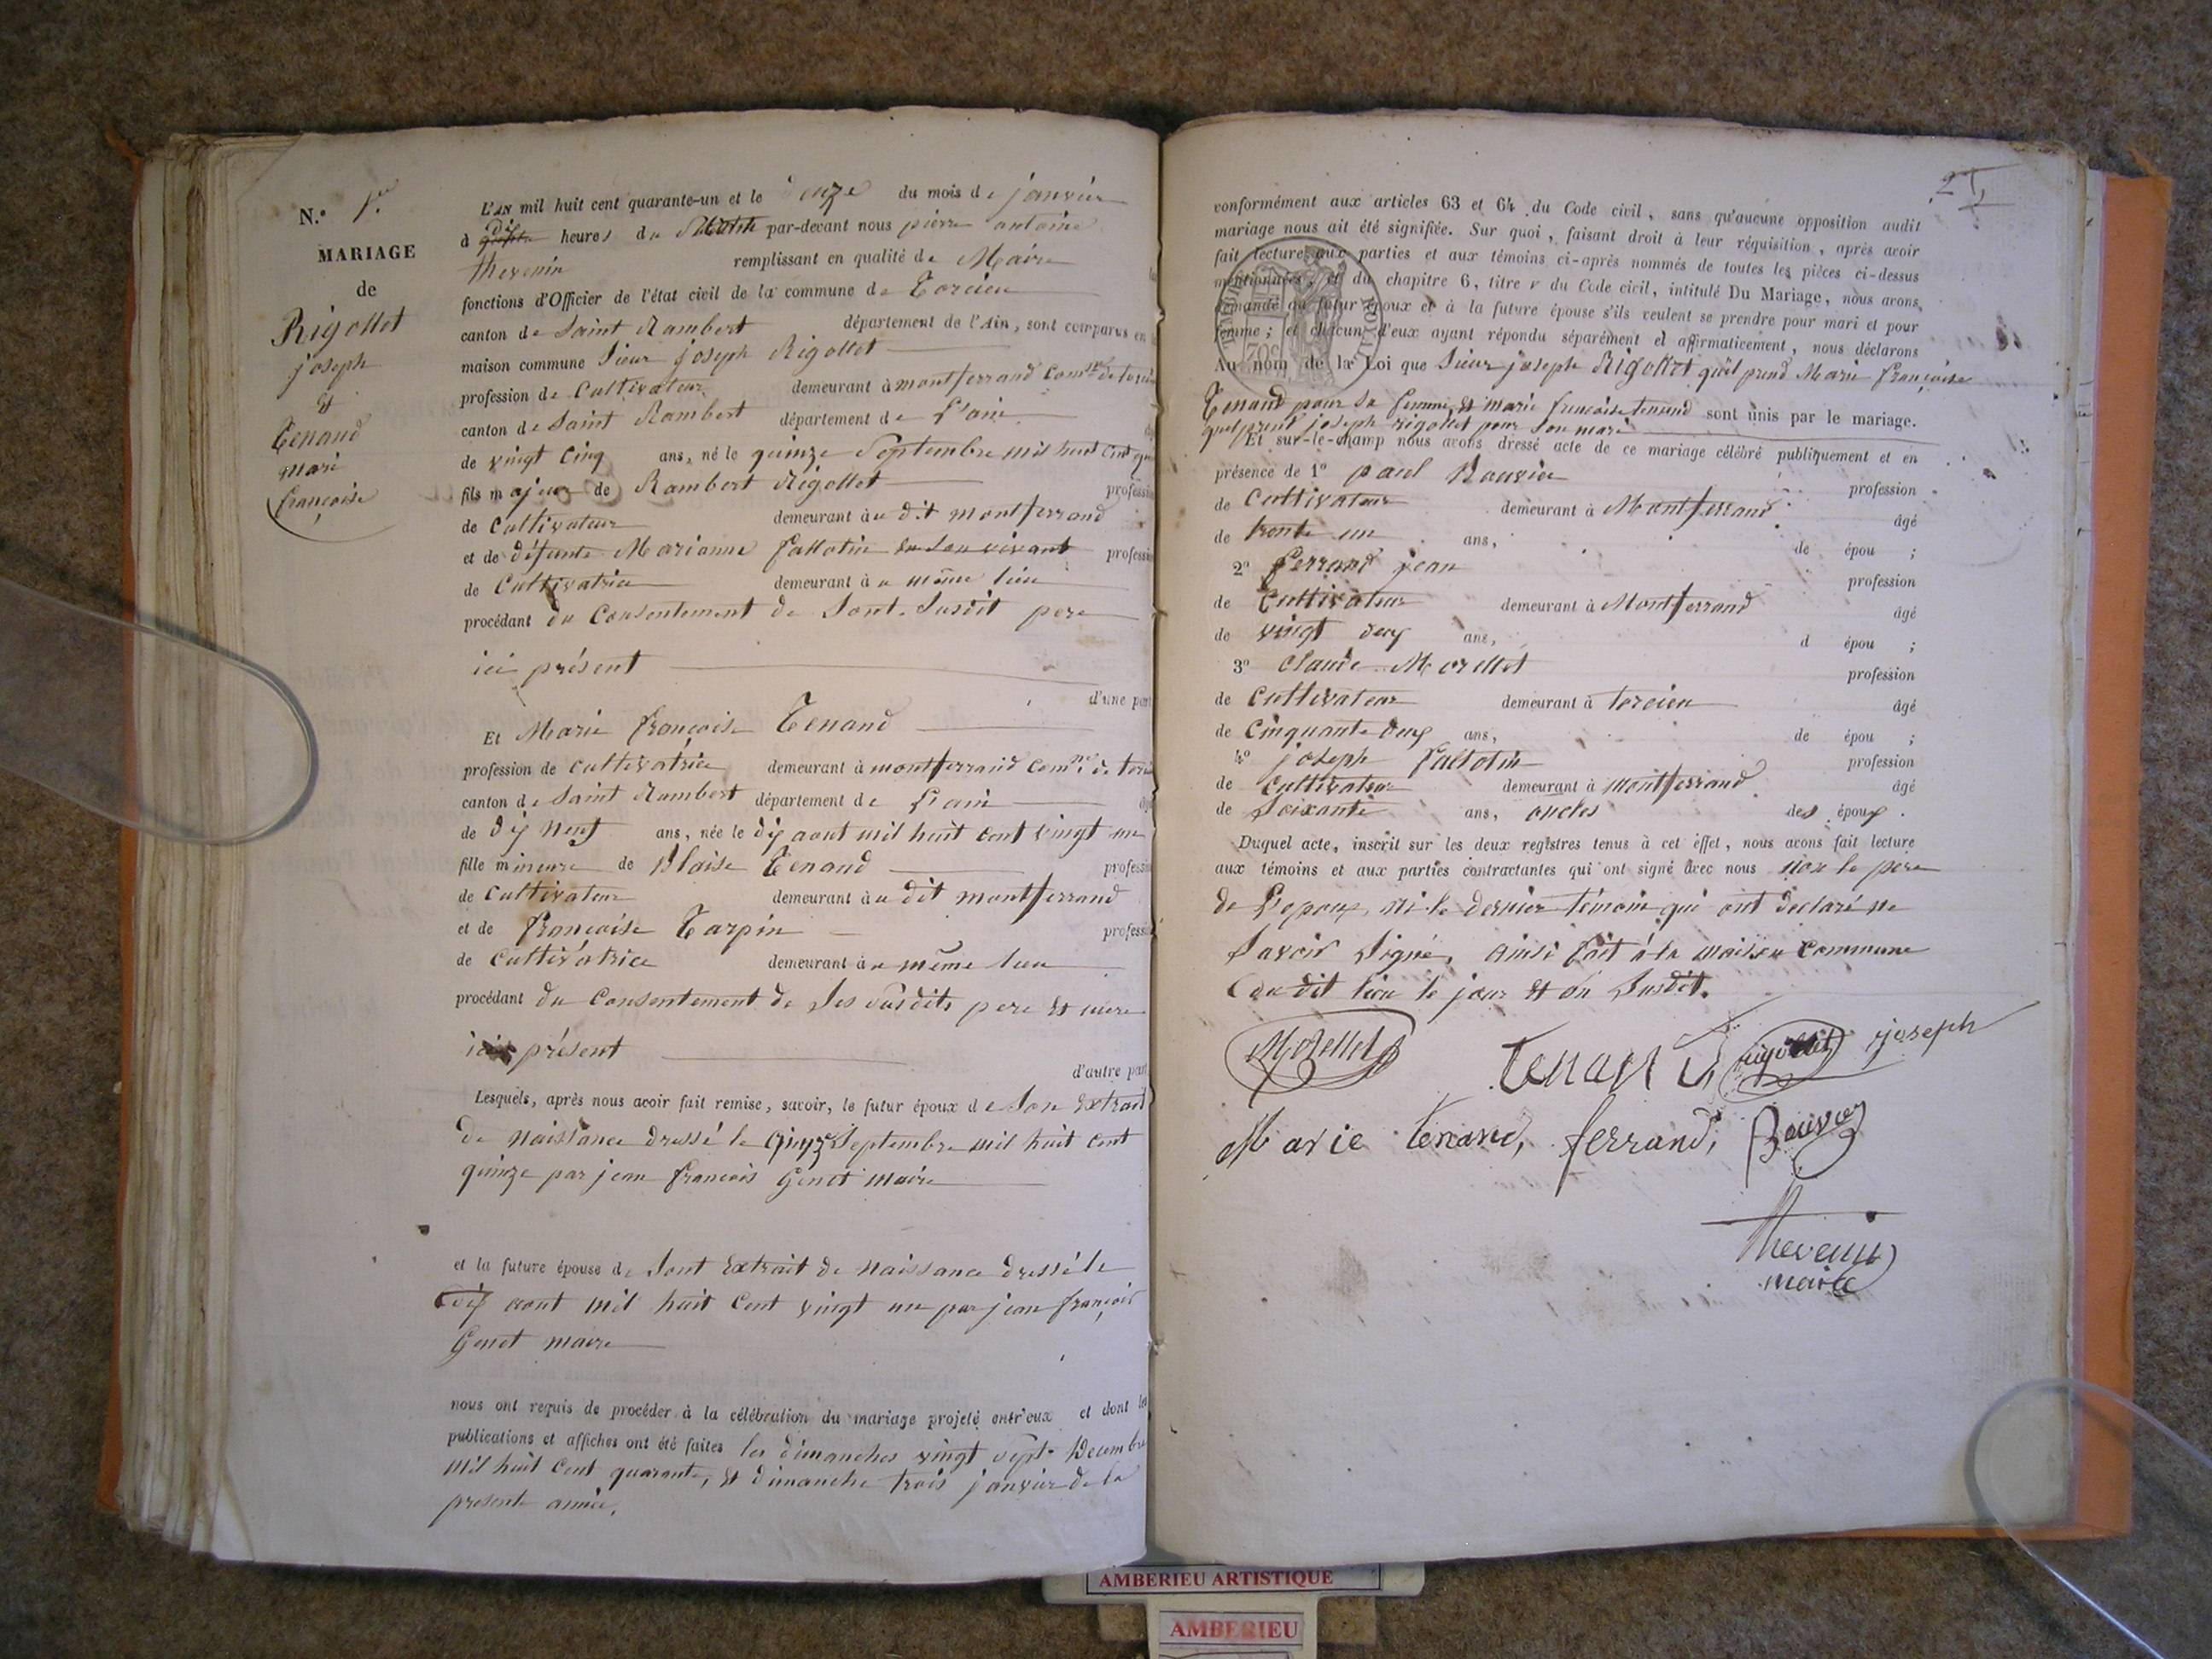 N.º 1.er
MARIAGE
de
Rigollet
joseph
Et
Tenand
marie
françoise
L'AN mil huit cent quarante-un et le du mois de janvier
à dix heures du matin par-devant nous pierre antoine
thevenin remplissant en qualité de Maire
fonctions d'Officier de l'état civil de la commune de Torcieu
canton de Saint Rambert département de l'Ain, sont comparus en
maison commune Sieur joseph Rigollet
profession de Cultivateur demeurant à montferrand Comne de torcieu
canton de Saint Rambert département de L'ain
de vingt cinq ans, né le quinze Septembre mil huit Cent
fils majeur de Rambert Rigollet profession
de Cultivateur demeurant àu dit montferrand
et de défunte Marianne fallotin de son vivant profession
de Cultivatrice demeurant àu même lieu
procédant du Consentement de Sont Susdit pere
ici présent
d'une part
Et Marie françoise Tenand
profession de cultivatrice demeurant à montferrand Comne de torcieu
canton de Saint Rambert département de L'ain
de dix neuf ans, née le dix aout mil huit cent vingt un
fille mineure de Blaise Tenand profession
de Cultivateur demeurant àu dit montferrand
et de françoise Tarpin profession
de Cultivatrice demeurant àu même lieu
procédant du Consentement de Ses susdits pere et mere
ici présent
d'autre part
Lesquels, après nous avoir fait remise, savoir, le futur époux de Son Extrait
de Naissance dressé le quinze Septembre mil huit cent
quinze par jean françois Genet maire
et la future épouse de Sont Extrait de Naissance dressé le
dix aout mil huit Cent vingt un par jean françois
Genet maire
nous ont requis de procéder à la célébration du mariage projeté entr'eux et dont les
publications et affiches ont été faites les dimanches vingt sept Decembre
Mil huit Cent quarante, et dimanche trois janvier de la
presente année.
conformément aux articles 63 et 64 du Code civil, sans qu'aucune opposition audit
mariage nous ait été signifiée. Sur quoi, faisant droit à leur réquisition, après avoir
fait lecture aux parties et aux témoins ci-après nommés de toutes les pièces ci-dessus
mentionnées, et du chapitre 6, titre v du Code civil, intitulé Du Mariage, nous avons
demandé au futur époux et à la future épouse s'ils veulent se prendre pour mari et pour
femme; et chacun d'eux ayant répondu séparément et affirmativement, nous déclarons
Au nom de la Loi que Sieur joseph Rigollet qu'il prend Marie françoise
Tenand pour Sa femme, et marie francoise tenand sont unis par le mariage.
quel prent joseph rigollet pour Son mari
Et sur-le-champ nous avons dressé acte de ce mariage célébré publiquement et en
présence de 1º paul Bouvier profession
de Cultivateur demeurant à Montferrand âgé
de trente un ans, de épou ;
2º ferrand jean profession
de Cultivateur demeurant à Montferrand âgé
de vingt deux ans, d épou ;
3º Claude Morellet profession
de Cultivateur demeurant à torcieu âgé
de Cinquante deux ans, de épou ;
4º joseph fallotin profession
de Cultivateur demeurant à montferrand âgé
de Soixante ans, oncles des époux.
Duquel acte, inscrit sur les deux registres tenus à cet effet, nous avons fait lecture
aux témoins et aux parties contractantes qui ont signé avec nous non le pere
de L'epoux, ni le dernier témoin qui ont declaré ne
Savoir Signé, ainsi fait à la maison Commune
du dit lieu le jour et an Susdit.
Morellet Tenand rigollet joseph
Marie tenand, ferrand, Bouvier
Thevenin
maire
TIMBRE ROYAL
70c
AMBERIEU ARTISTIQUE
AMBERIEU